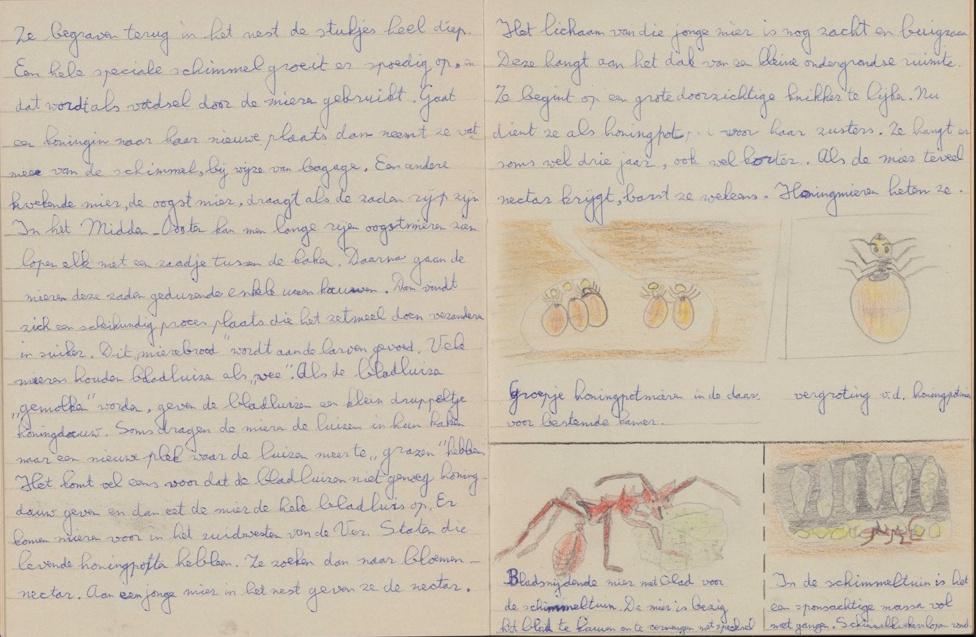 Ze begraven terug in het nest de stukjes heel diep.
Een hele speciale schimmel groeit er spoedig op, en
dat wordt als voedsel door de mieren gebruikt. Gaat
een koningin naar haar nieuwe plaats dan neemt ze wat
mee van de schimmel, bij wijze van bagage. Een andere
kwekende mier, de oogstmier, draagt als de zaden rijp zijn
In het Midden-Oosten kan men lange rijen oogstmieren zien
lopen elk met een zaadje tussen de kaken. Daarna gaan de
mieren deze zaden gedurende enkele uren kauwen. Dan vindt
zich een scheikundig proces plaats die het zetmeel doen veranderen
in suiker. Dit "mierebrood" wordt aan de larven gevoed. Vele
mieren houden bladluizen als "vee". Als de bladluizen
"gemolken" worden, geven de bladluizen een klein druppeltje
honingdauw. Soms dragen de mieren de luizen in hun kaken
naar een nieuwe plek waar de luizen meer te "grazen" hebben
Het komt wel eens voor dat de bladluizen niet genoeg honing-
dauw geven en dan eet de mier de hele bladluis op. Er
komen mieren voor in het zuidwesten van de Ver. Staten die
levende honingpotten hebben. Ze zoeken dan naar bloemen-
nectar. Aan een jonge mier in het nest geven ze de nectar.
Het lichaam van die jonge mier is nog zacht en buigzaam
Deze hangt aan het dak van een kleine ondergrondse ruimte.
Ze begint op een grote doorzichtige knikker te lijken. Nu
dient ze als honingpot voor haar zusters. Ze hangt er
soms wel drie jaar, ook wel korter. Als de mier teveel
nectar krijgt, barst ze weleens. Honingmieren heten ze.
Groepje honingpotmieren in de daar-
voor bestemde kamer.
vergroting v.d. honingpotmier
Bladsnijdende mier met blad voor
de schimmeltuin. De mier is bezig
het blad te kauwen en te vermengen met speeksel
In de schimmeltuin is het
een sponsachtige massa vol
met gangen. lopen rond